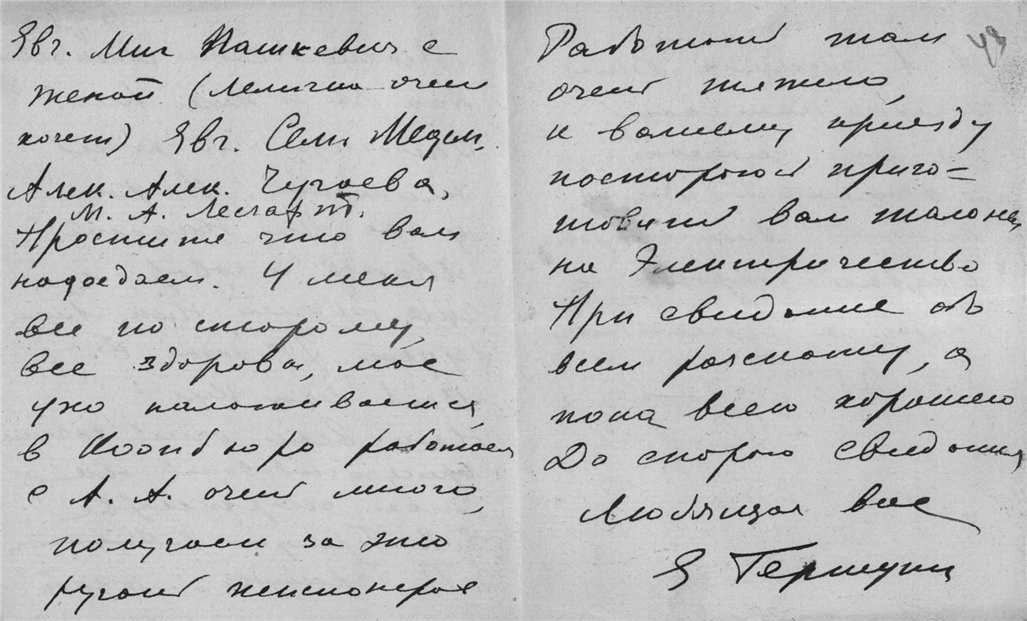 Евг. Мих Пашкевич с
женой (
очен
хочет) Евг. Семн Медын.
Алек. Алек. Чугаева,
М. А.
Простите что вам
надоедаем. У меня
все по старому,
все здоровы, мое
ухо налаживается,
в работаем
с А. А. очень много,
получаем за это
пенсионеров
Работать там
очень тяжело,
к вашему приезду
постараюсь приго=
товить вам талоны
на Электричество
При свидание об
всем расскажу, а
пока всего хорошего
До скорого свидания
Любящая вас
Е
43